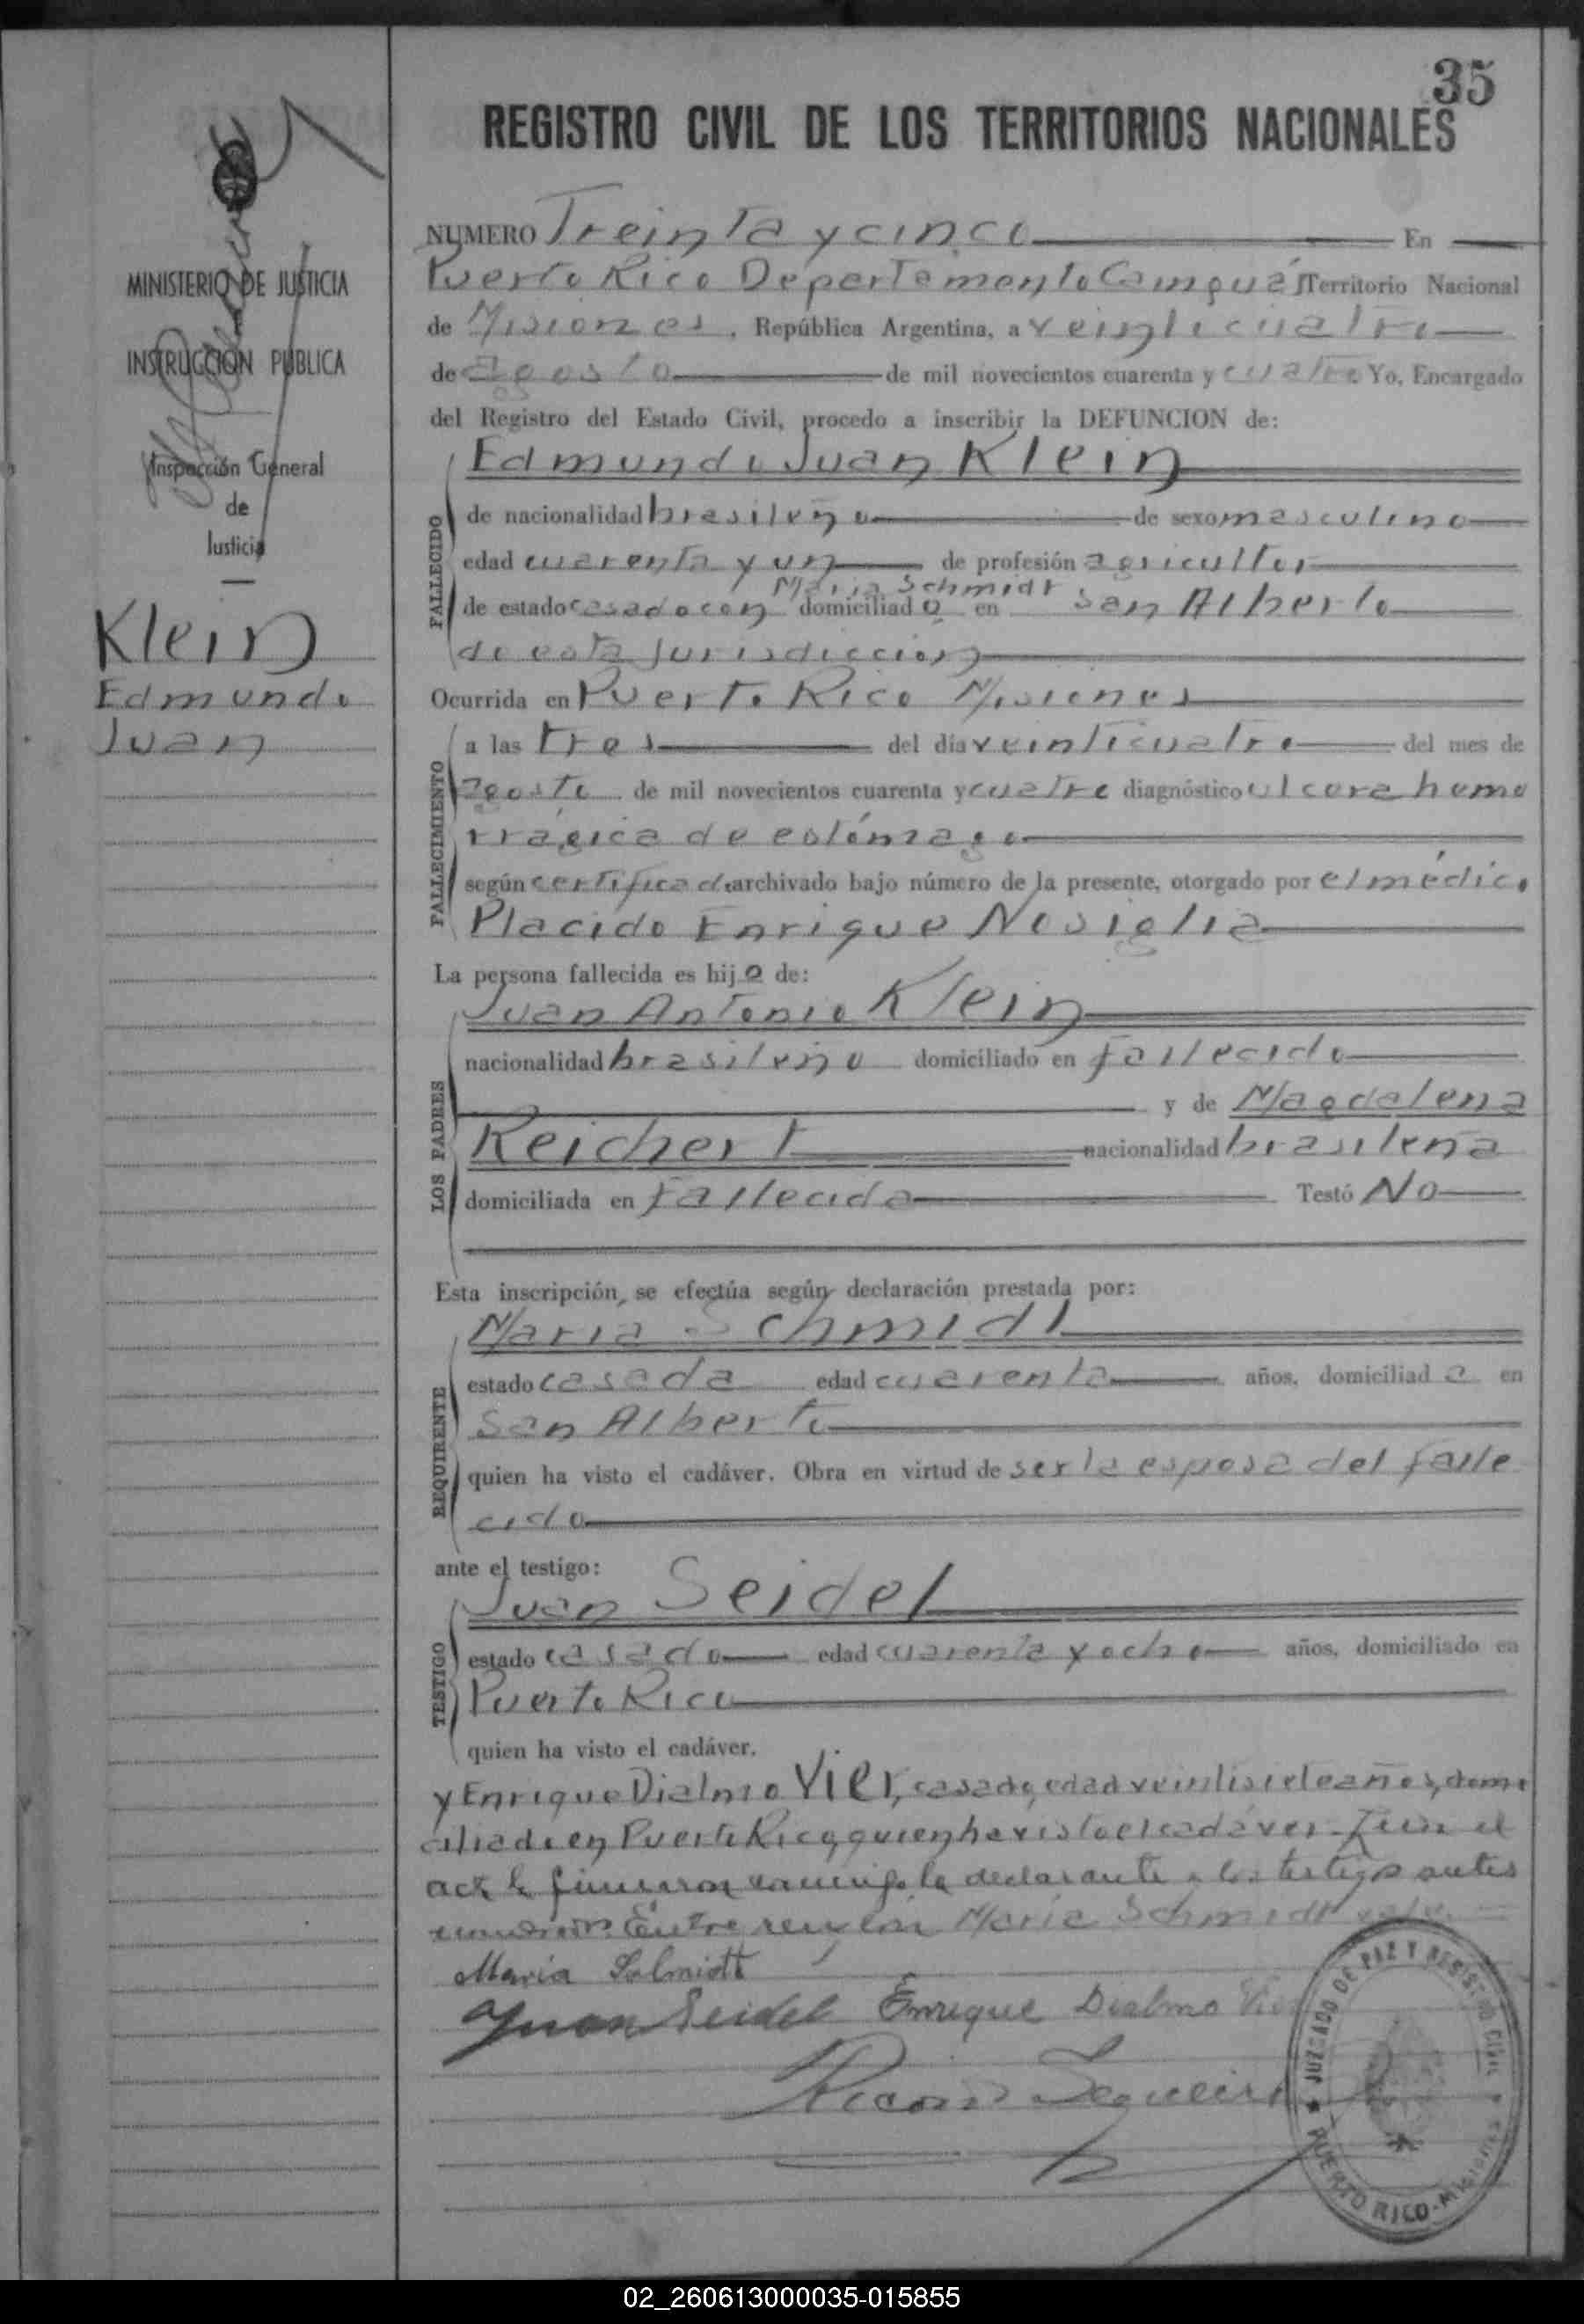 35
REGISTRO CIVIL DE LOS TERRITORIOS NACIONALES
MINISTERIO DE JUSTICIA
INSTRUCCIÓN PÚBLICA
Inspección General
de
Justicia
Klein
Edmundo
Juan
NUMERO Treinta y cinco En
Puerto Rico Departamento Cainguás Territorio Nacional
de Misiones, República Argentina, a veinticuatro
de agosto de mil novecientos cuarenta y cuatro Yo, Encargado
del Registro del Estado Civil, procedo a inscribir la DEFUNCION de:
FALLECIDO
Edmundo Juan Klein
de nacionalidad brasileño de sexo masculino
edad cuarenta y un de profesión agricultor
Maria Schmidt
de estado casado con domiciliado en San Alberto
de esta jurisdicción
Ocurrida en Puerto Rico Misiones
FALLECIMIENTO
a las tres del día veinticuatro del mes de
agosto de mil novecientos cuarenta y cuatro diagnóstico ulcera hemo
rrágica de estómago
según certificado archivado bajo número de la presente, otorgado por el médico
Placido Enrique Nosiglia
La persona fallecida es hijo de:
LOS PADRES
Juan Antonio Klein
nacionalidad brasileño domiciliado en fallecido
y de Magdalena
Reichert nacionalidad brasileña
domiciliada en fallecida Testó No
Esta inscripción, se efectúa según declaración prestada por:
REQUIRENTE
Maria Schmidt
estado casada edad cuarenta años, domiciliada en
San Alberto
quien ha visto el cadáver. Obra en virtud de ser la esposa del falle
cido
ante el testigo:
TESTIGO
Juan Seidel
estado casado edad cuarenta y ocho años, domiciliado en
Puerto Rico
quien ha visto el cadáver.
y Enrique Dialmo Vier, casado, edad veintisiete años, domi
ciliado en Puerto Rico, quien ha visto el cadáver. el
acta la firmaron conmigo la declarante y los testigos antes
Entre renglón Maria Schmidt vale.
Maria Schmidt
Juan Seidel Enrique Dialmo Vier
JUZGADO DE PAZ Y REGISTRO CIVIL
PUERTO RICO - MISIONES
02_260613000035-015855